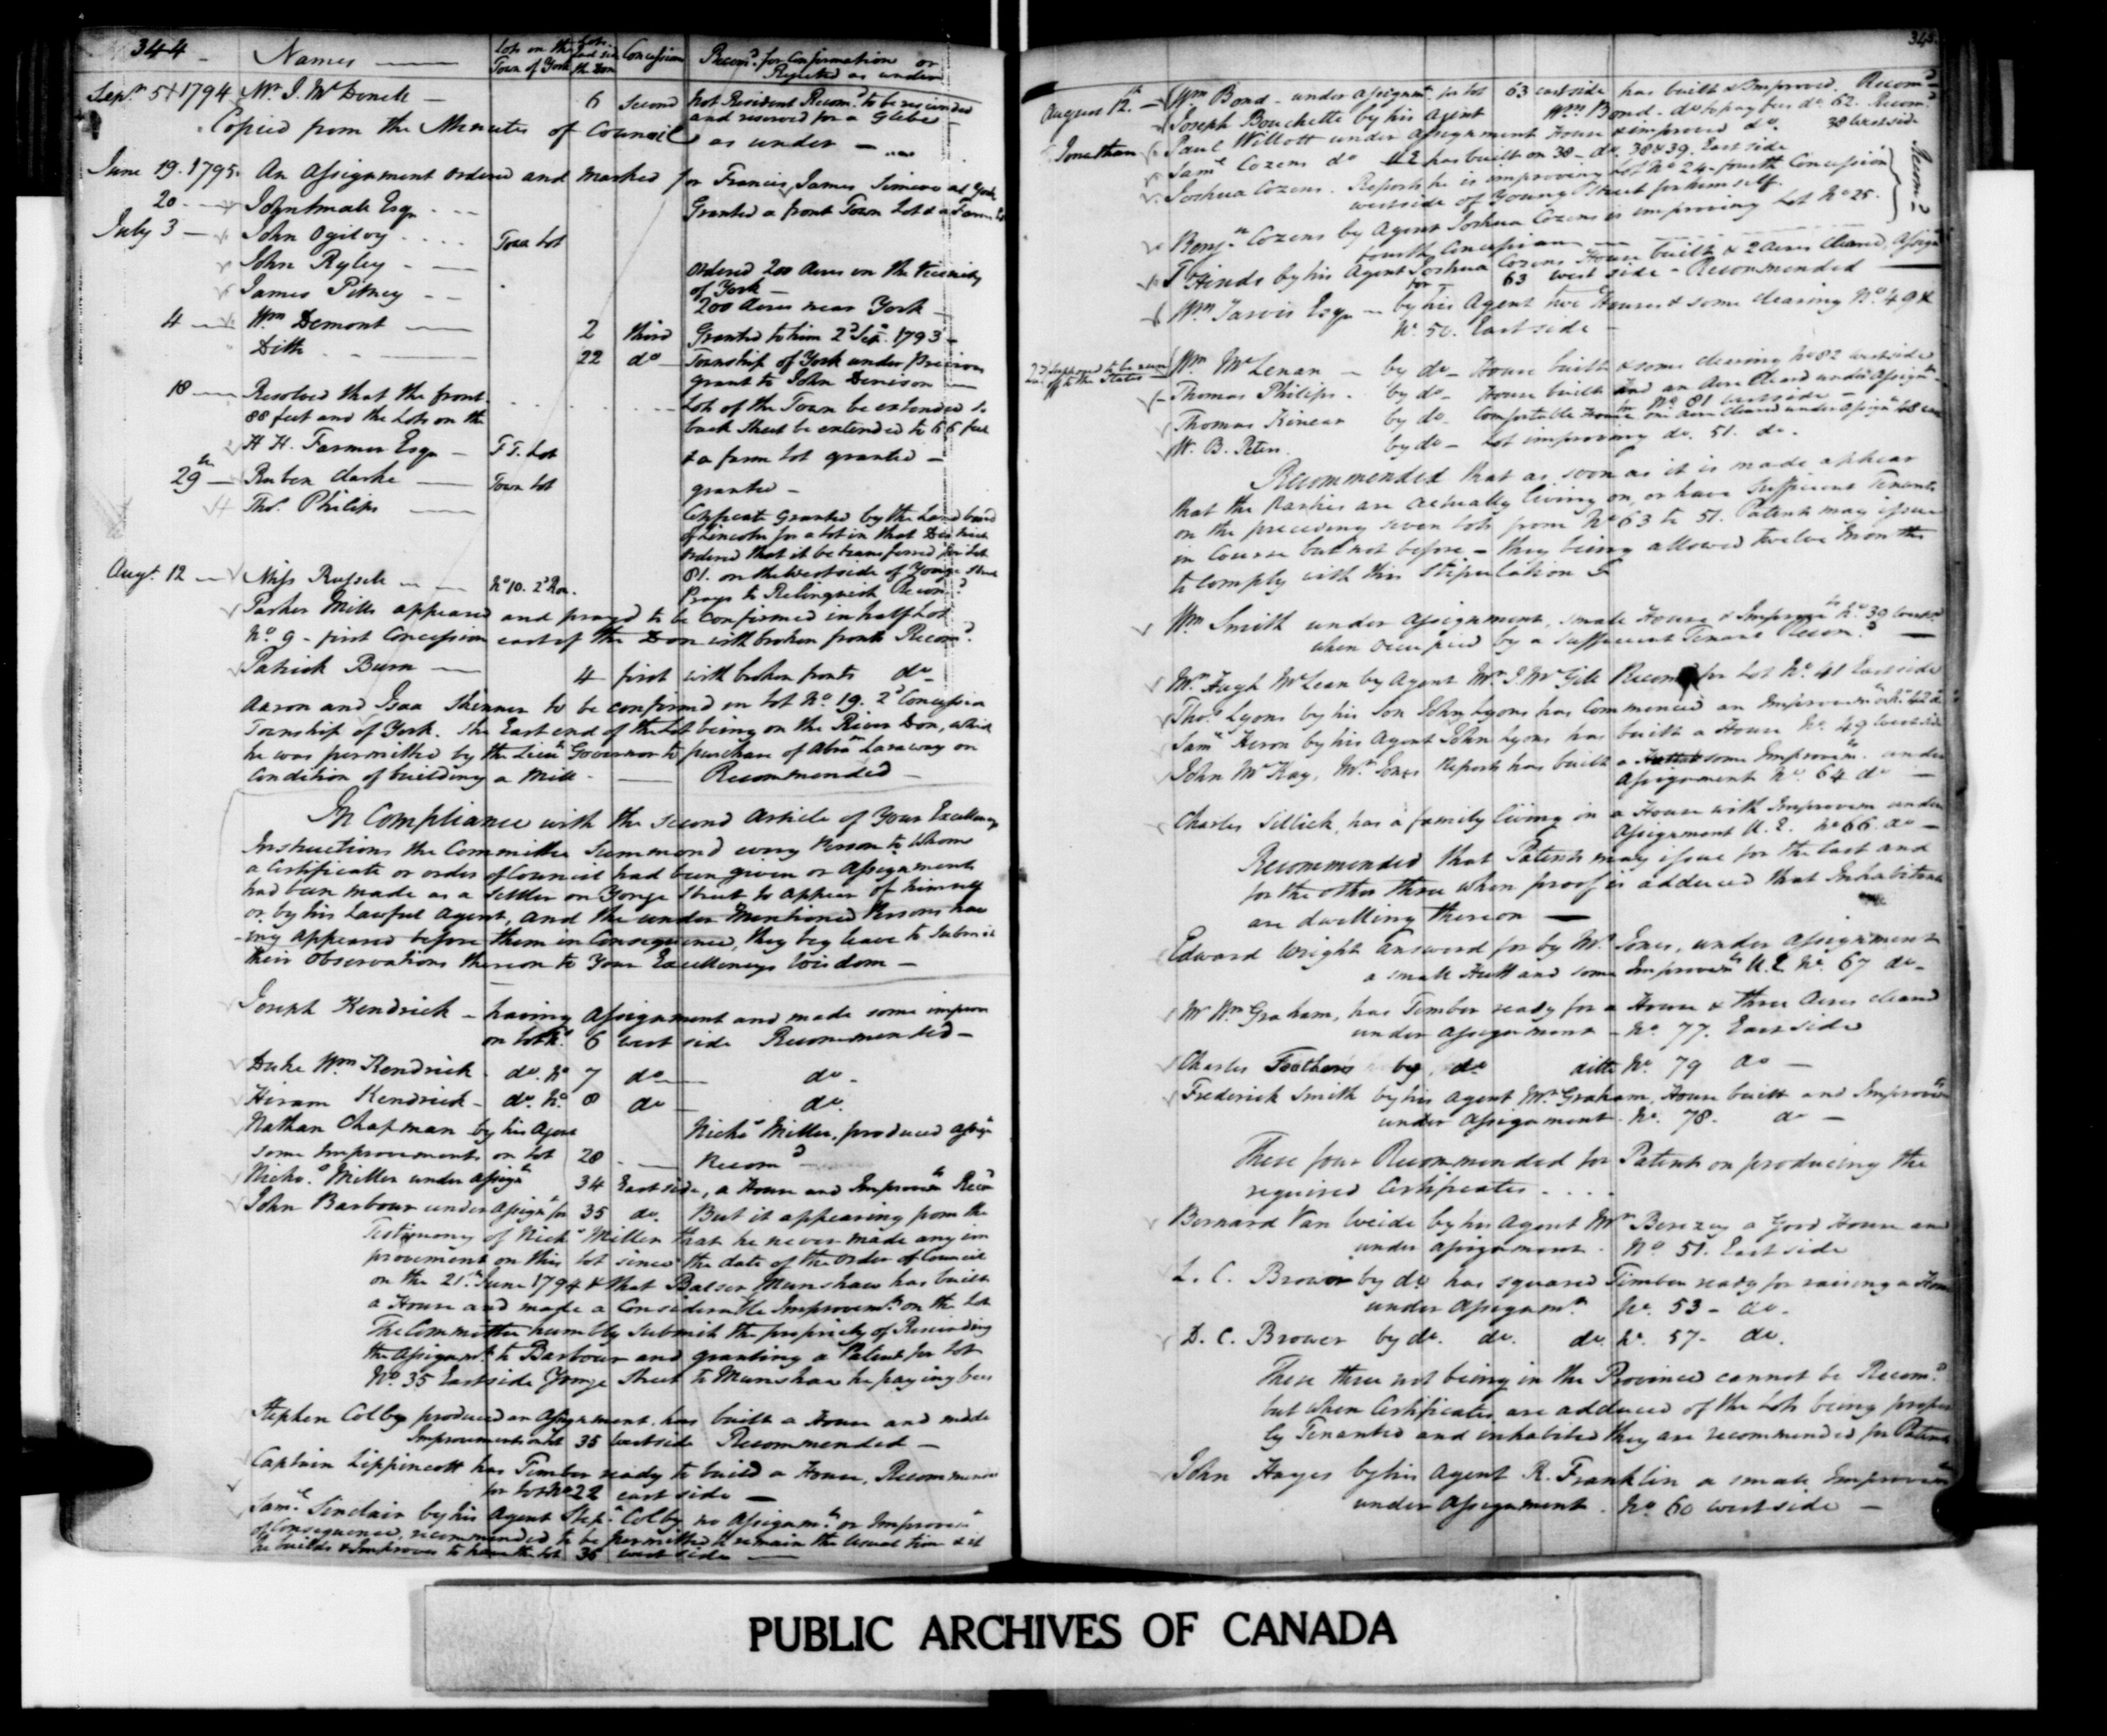 344
Names
Lots on the Town of York
Concession
Recom.d for Confirmation or Rejected as under
Sept.r 5th 1794 Mr. J. McDonell - 6 Second Not Resident Recom.d to be rescinded
and reserved for a Glebe
Copied from the Minutes of Council as under -
June 19. 1795. An Assignment ordered and marked for Francis James Simcoe at York
20. John Small Esqr. Granted a front Town Lot & a Farm Lot
July 3 John Ogilvy Town Lot
John Ryley Ordered 200 Acres in the vicinity
of York -
James Pitney 200 Acres near York
4 Wm Demont 2 third Granted to him 2d Sept. 1793 -
Ditto 22 do Township of York under previous
grant to John Denison
18 Resolved that the front Lots of the Town be extended to
88 feet and the Lots on the back Street be extended to 66 feet
H H. Farmer Esqr - F T. Lot & a farm lot granted -
29th Ruben Clarke Town Lot granted -
Thos. Philips Certificate granted by the Land board
of Lincoln for a lot in that District
Ordered that it be transferred for Lot
81. on the West side of Yonge Street
Augt. 12 Miss Russell No 10. 2d Row. Prays to Relinquish Recom.d
Parker Mills appeared and prayed to be confirmed in half Lot
No. 9 - first Concession east of the Don with broken fronts Recom.d
Patrick Burn 4 first with broken fronts do
Aaron and Isaa Skinner to be confirmed in lot No. 19. 2d Concession
Township of York. the East end of the Lot being on the River Don, which
he was permitted by the Lieut Governor to purchase of Abram Laraway on
Condition of building a Mill - Recommended
In Compliance with the second Article of Your Excellency
Instructions the Committee Summon'd every Person to Whom
a Certificate or order of Council had been given or Assignment
had been made as a Settler on Yonge Street to appear of himself
or by his Lawful Agent, and the under Mentioned Persons hav
-ing appeared before them in Consequence, they beg leave to submit
their Observations thereon to Your Excellencys Wisdom -
Joseph Kendrick - having Assignment and made some improv
on Lot No. 6 west side Recommended -
Duke Wm Kendrick - do. No 7 do do -
Hiram Kendrick - do. No. 8 do do.
Nathan Chapman by his Agent Nichs Miller, produced Assign
some Improvements on Lot 28 - Recom.d
Nichs. Miller under Assign 34 East side, a House and Improvem Recom
John Barbour under Assign for 35 do. But it appearing from the
Testimony of Nichs Miller that he never made any im
provement on this lot since the date of the Order of Council
on the 21st June 1794 & that Balser Munshaw has built
a House and made a Considerable Improvemt. on the Lot
The Committee humbly submit the propriety of Rescinding
the Assignmt. to Barbour and granting a Patent for Lot
No. 35 East side Yonge Street to Munshaw he paying fees
Stephen Colby produced an Assignment, has built a House and made
Improvement on Lot 35 west side Recommended -
Captain Lippincott has Timber ready to build a House, Recommended
for Lot No 22 east side -
Saml. Sinclair by his Agent Stepn Colby no Assignmt. or Improvem
of Consequence, recommended to be permitted to remain the Usual time & if
he builds & Improves to have the lot 36 west side
345
August 12th - Wm Bond - under Assignmt for lot 63 east side has built & Improved. Recom.d
Joseph Bouchette by his Agent Wm Bond - do to pay fees do 62. Recom.d
Jonathan Paul Willott under Assignment House & improved do. 38 West side
Saml Cozens do has built on 38 - do. 38 & 39. East side
Joshua Cozens. Reports he is improving Lot No 24 - fourth Concession
west side of Young Street for himself.
Recom.d
Benjn Cozens by Agent Joshua Cozens is improving Lot No 25.
fourth Concession
T Hinds by his Agent Joshua Cozens House built & 2 Acres cleared, Assign
for 63 west side - Recommended
Wm Jarvis Esqr - by his Agent two Houses & some clearing No. 49 &
No. 50. East side
supposed to be run off to the States
Wm McLenan - by do - House built & some clearing No 82 west side
Thomas Philips - by do - House built and an Acre cleard under Assignt
No. 81 west side -
Thomas Kinear by do Comfortable House one Acre cleared under Assign
W. B. Peters by do - Lot improving do. 51. do.
Recommended that as soon as it is made appear
that the Parties are actually living on, or have sufficient Tenants
on the preceding seven lots from No 63 to 51. Patents may issue
in Course but not before - they being allowed twelve months
to comply with this stipulation
Wm Smith under Assignment, small House & Improvem No. 39 West
when occupied by a sufficient Tenant Recom.d
Mr. Hugh McLean by Agent Mr. J. McGill Recom for Lot No. 41 East side
Thos. Lyons by his Son John Lyons has Commenced an Improvem
Saml Heron by his Agent John Lyons has built a House No. 49 West side
John McKay, Mr. Jones Reports has built a some Improvem. under
Assignment No. 64 do
Charles Sellick, has a family living in a House with Improvem under
Assignment U. E. No 66. do -
Recommended that Patents may issue for the last and
for the other three when proof is adduced that Inhabitants
are dwelling thereon -
Edward Wright answerd for by Mr. Jones, under Assignment
a small Hutt and some Improvemts U. E. No. 67 do -
Mr Wm Graham, has Timber ready for a House & three Acres cleard
under Assignment - No. 77. East side
Charles Feathers by do ditto No. 79 do -
Frederick Smith by his Agent Mr Graham, House built and Improvem
under Assignment. No. 78. do -
These four Recommended for Patents on producing the
required Certificates . . . .
Bernard Van by his Agent Mr Berczy a Good House and
under Assignment. No. 51. East side
L. C. Brower by do has squared Timber ready for raising a House
under Assignmt. No. 53 - do -
D. C. Brower by do. do. do. No. 57 - do.
These three not being in the Province cannot be Recom.d
but when Certificates are adduced of the Lots being proper
ly Tenanted and inhabited they are recommended for Patents
John Hayes by his Agent R. Franklin a small Improvem
under Assignment. No. 60 west side -
PUBLIC ARCHIVES OF CANADA